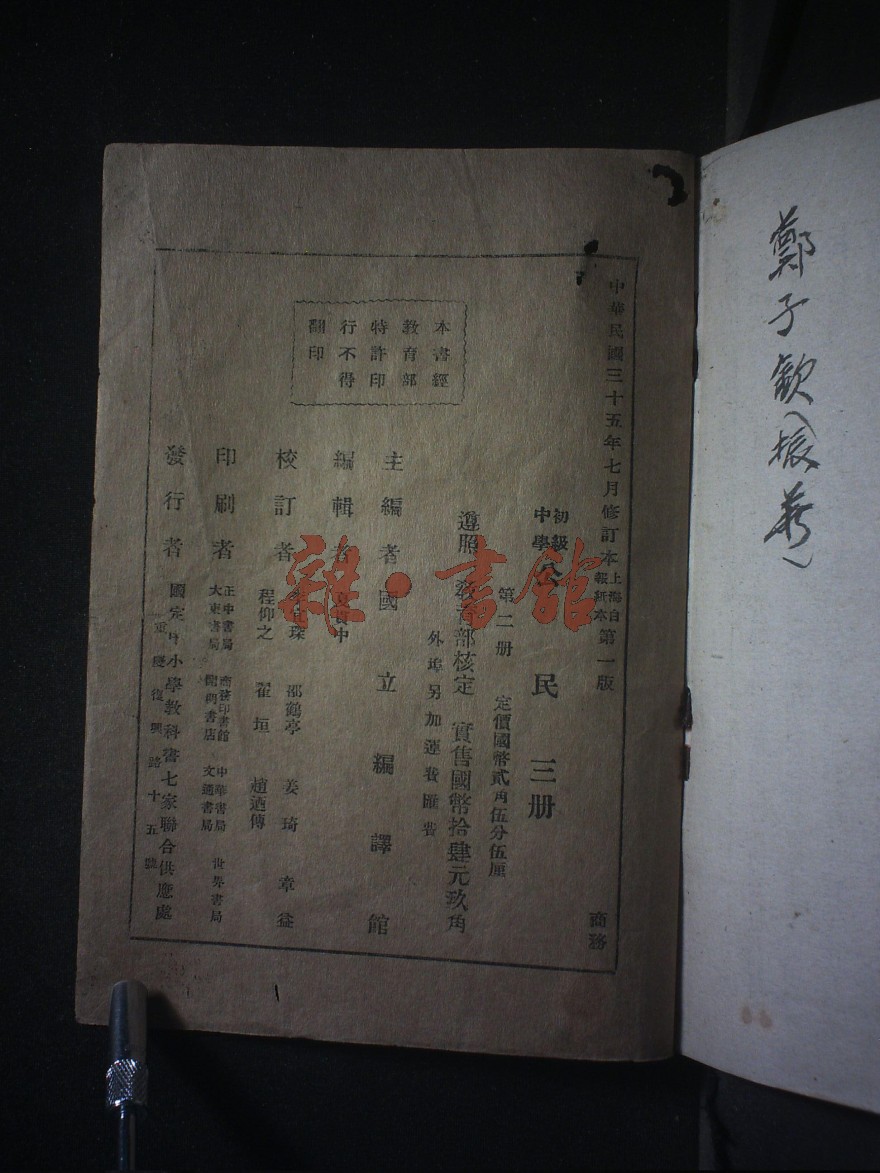 鄭子欽
中華民國三十五年七月修訂本 上海白報紙本 第一版
商務
初級中學 公民 三册
第二册 定價國幣貳角伍分伍厘
遵照教育部核定 實售國幣拾肆元玖角
外埠另加運費匯費
本書經
教育部
特許印
行不得
翻印
主編者 國立編譯館
編輯者 夏貫中
校訂者 琛 邵鶴亭 姜琦 章益
程仰之 翟垣 趙迺傳
印刷者 正中書局 商務印書館 中華書局 世界書局
大東書局 開明書店 文通書局
發行者 國定中小學教科書七家聯合供應處
重慶復興路十五號
雜·書館